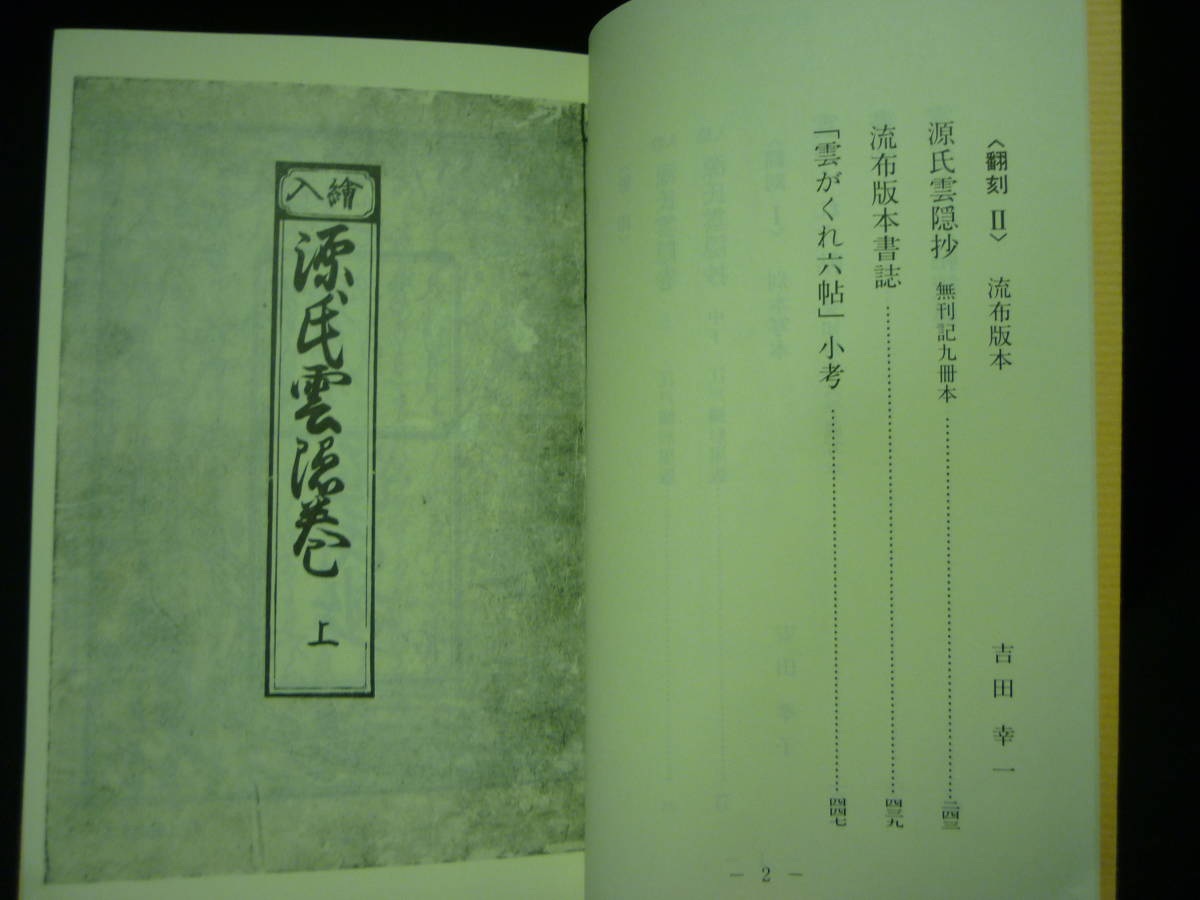 〈翻刻 Ⅱ〉 流布版本 吉田幸一
源氏雲隠抄 無刊記九冊本 ………… 二四三
流布版本書誌 ………… 四三九
「雲がくれ六帖」小考 ………… 四四七
— 2 —
繪入
源氏雲隠巻 上